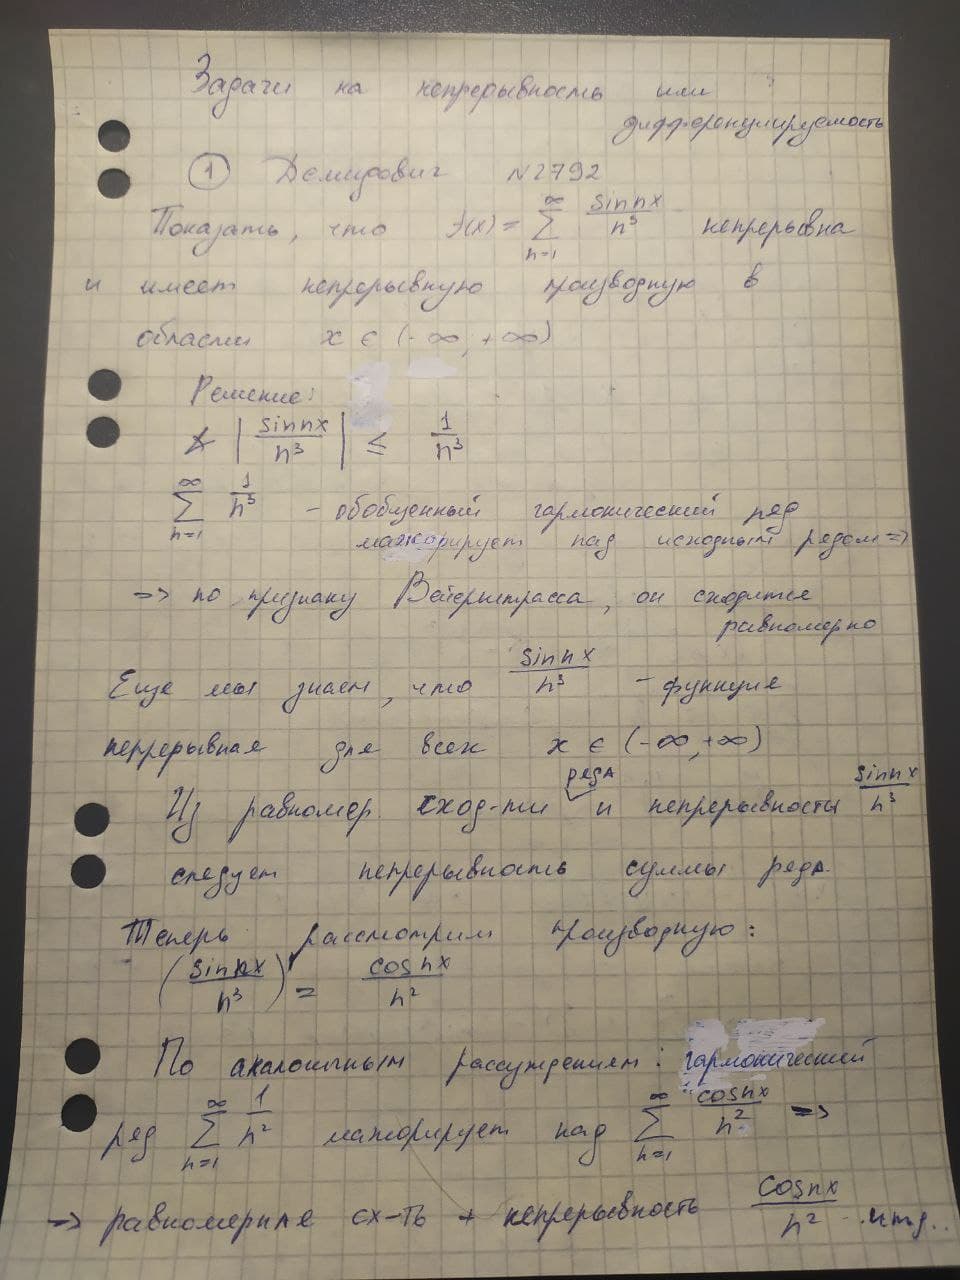 Задачи на непрерывность или
дифференцируемость
① Демидович N2792
Показать, что f(x) = ∑_{n=1}^{∞} sin nx / n³ непрерывна
и имеет непрерывную производную в
области x ∈ (-∞, +∞)
Решение:
∀ |sin nx / n³| ≤ 1 / n³
∑_{n=1}^{∞} 1 / n³ - обобщенный гармонический ряд
мажорирует над исходным рядом =>
=> по признаку Вейерштрасса, он сходится
равномерно
Еще мы знаем, что sin nx / n³ - функция
непрерывная для всех x ∈ (-∞, +∞)
Из равномер. сход-ти ряда и непрерывности sin nx / n³
следует непрерывность суммы ряда.
Теперь рассмотрим производную:
(sin nx / n³)' = cos nx / n²
По аналогичным рассуждениям: гармонический
ряд ∑_{n=1}^{∞} 1 / n² мажорирует над ∑_{n=1}^{∞} cos nx / n² =>
=> равномерная сх-ть + непрерывность cos nx / n² ..итд..